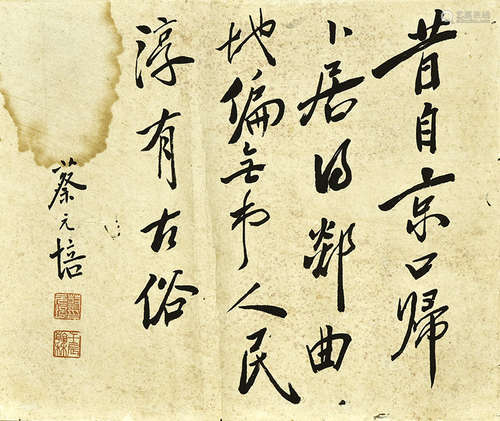 昔自京口歸
卜居得鄒曲
地偏無市人民
淳有古俗
蔡元培